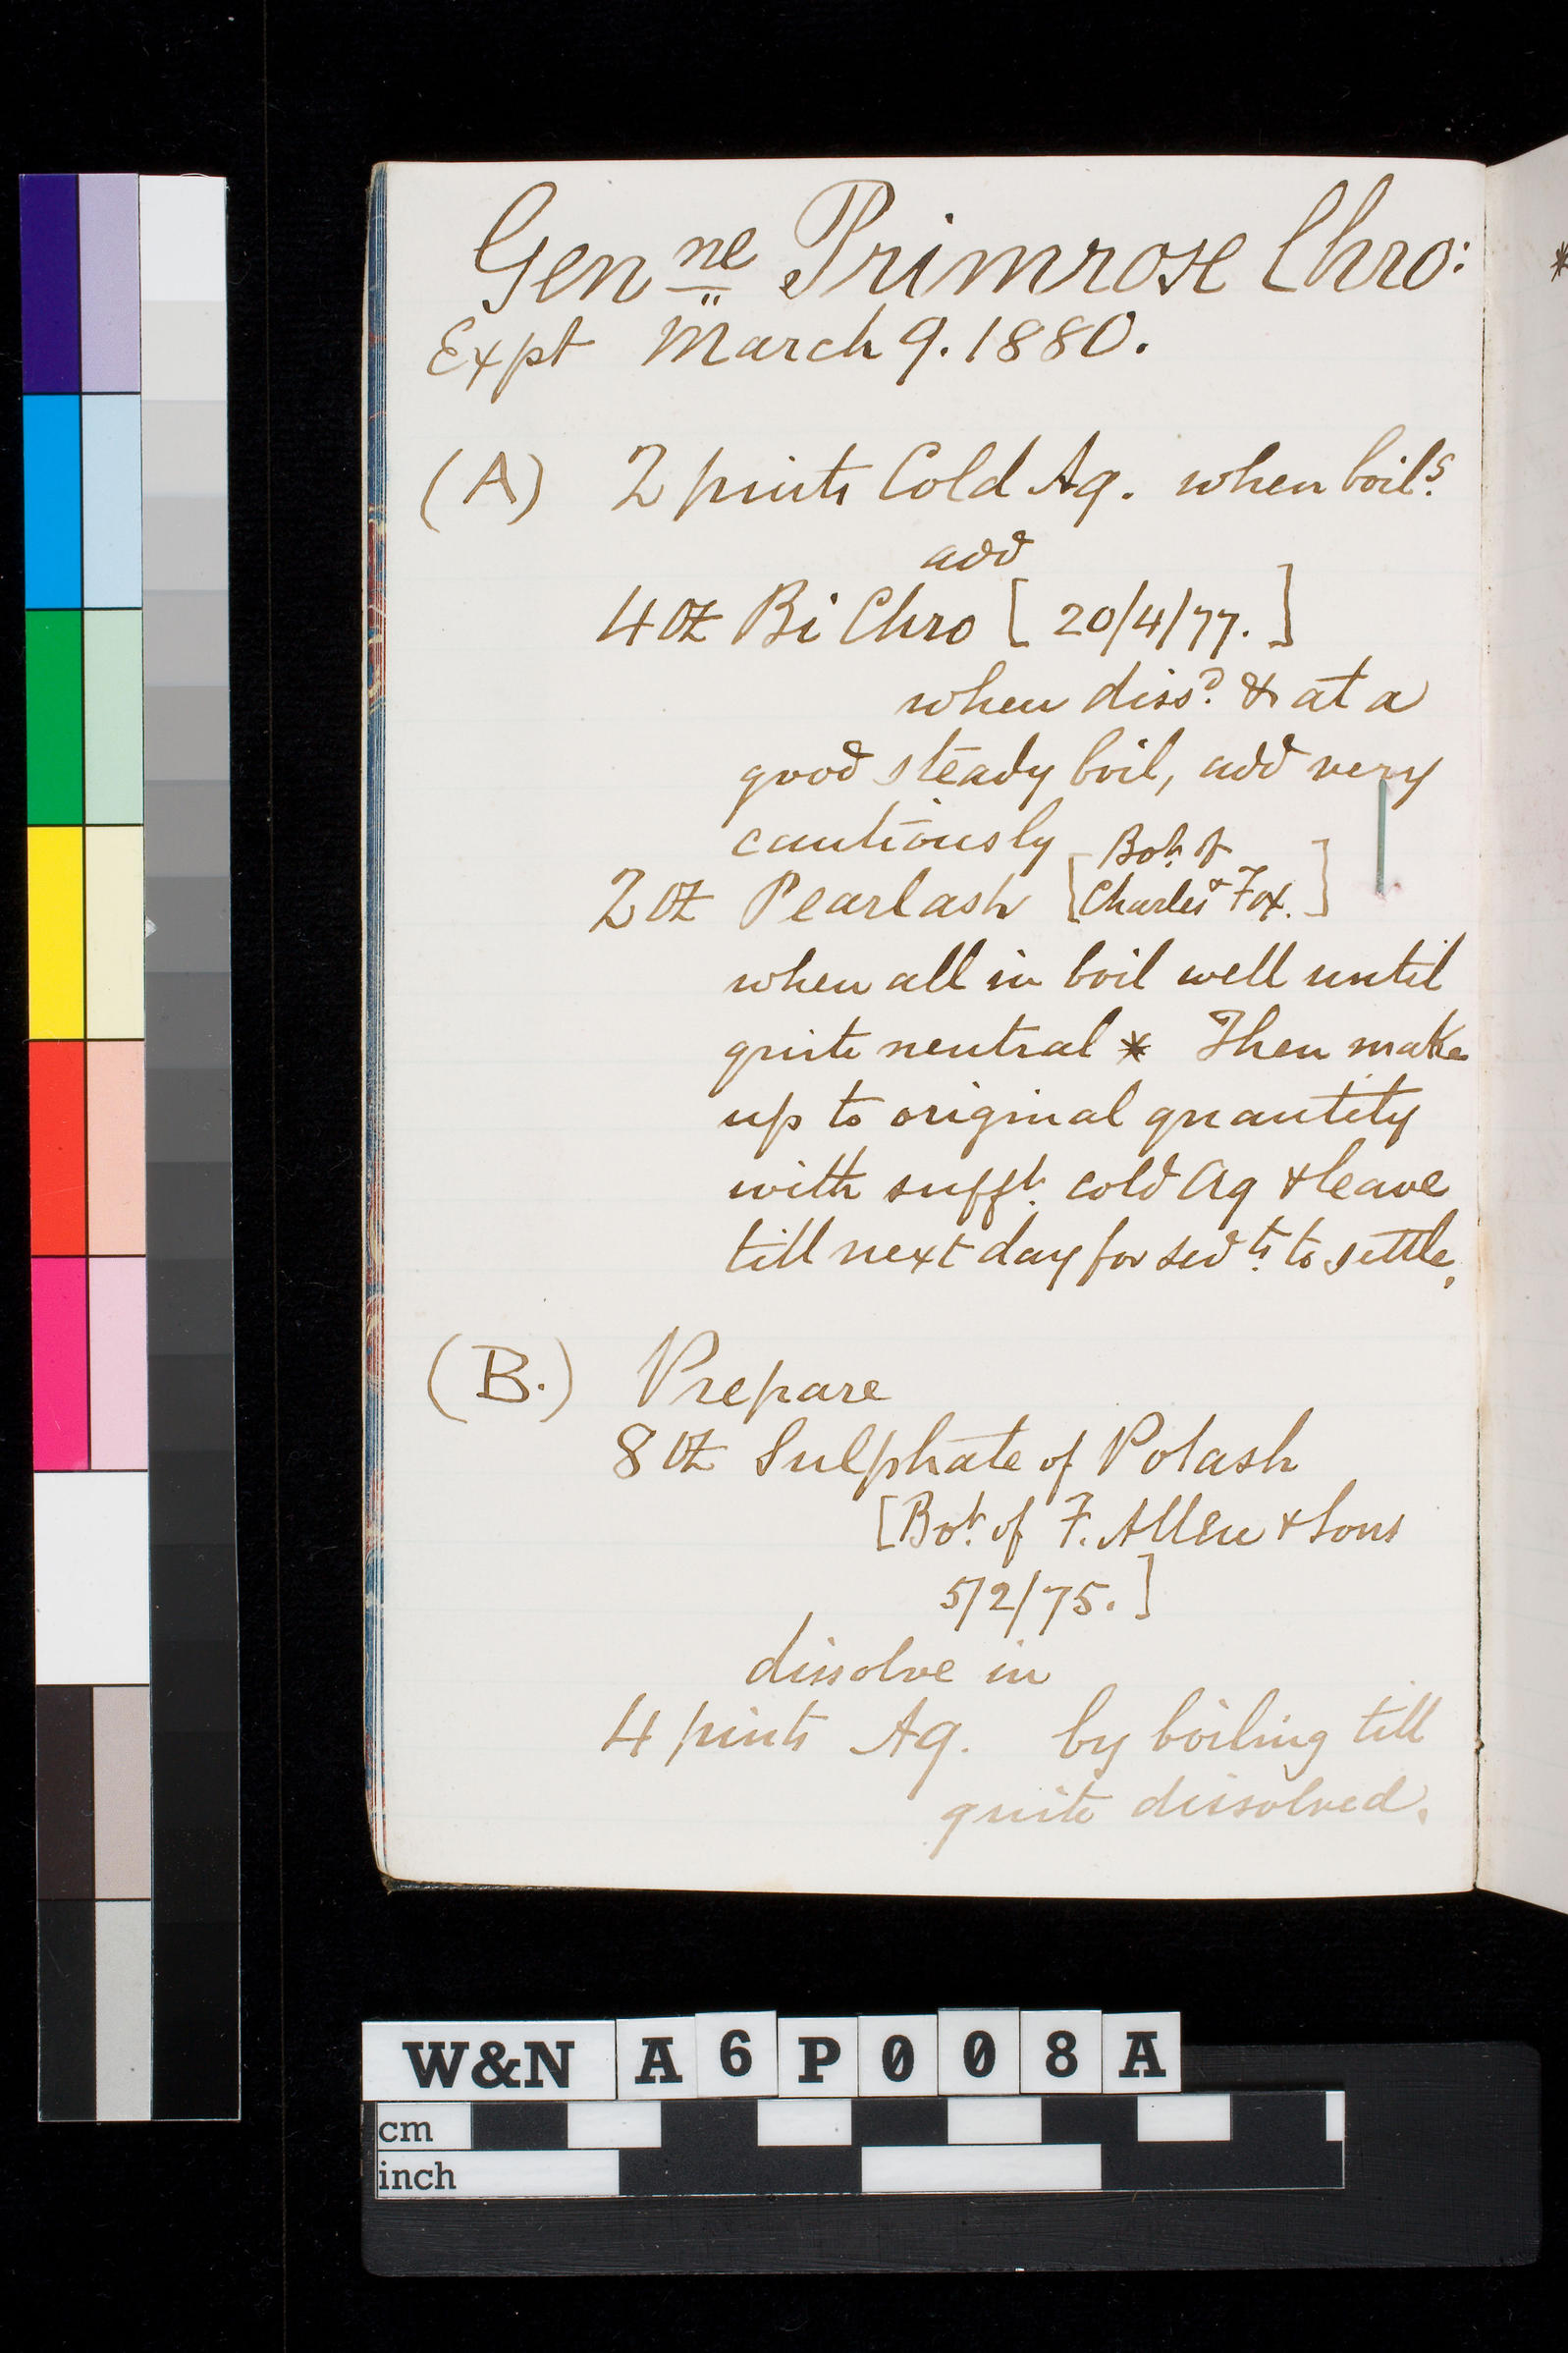 Gen ne Primrose Chro:
Expt March 9. 1880.
(A) 2 pints Cold Aq. when boils.
add
4 oz Bi Chro [ 20/4/77. ]
when dissd. & at a
good steady boil, add very
cautiously
2 oz Pearlash [ Bot. of Charles & Fox. ]
when all in boil well until
quite neutral * Then make
up to original quantity
with sufft. cold Aq & leave
till next day for sedts. to settle.
(B.) Prepare
8 oz Sulphate of Potash
[Bot. of F. Allen & Sons
5/2/75. ]
dissolve in
4 pints Aq. by boiling till
quite dissolved.
*
W&N A6P008A
cm
inch